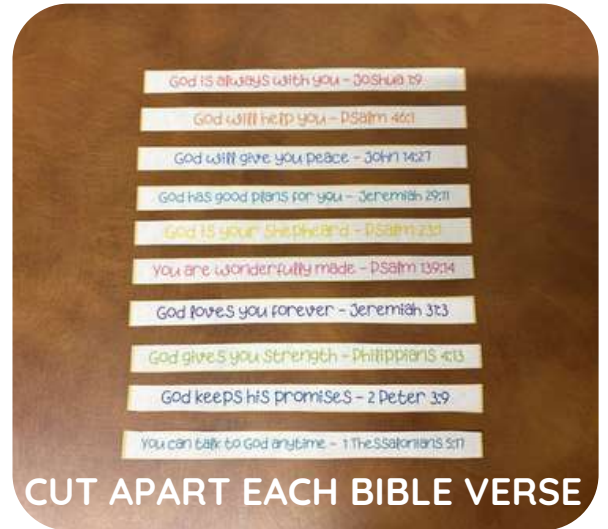 God is always with you - Joshua 1:9
God will help you - Psalm 46:1
God will give you peace - John 14:27
God has good plans for you - Jeremiah 29:11
God is your Shepheard - Psalm 23:1
You are wonderfully made - Psalm 139:14
God loves you forever - Jeremiah 31:3
God gives you strength - Philippians 4:13
God keeps his promises - 2 Peter 3:9
You can talk to God anytime - 1 Thessalonians 5:17
CUT APART EACH BIBLE VERSE